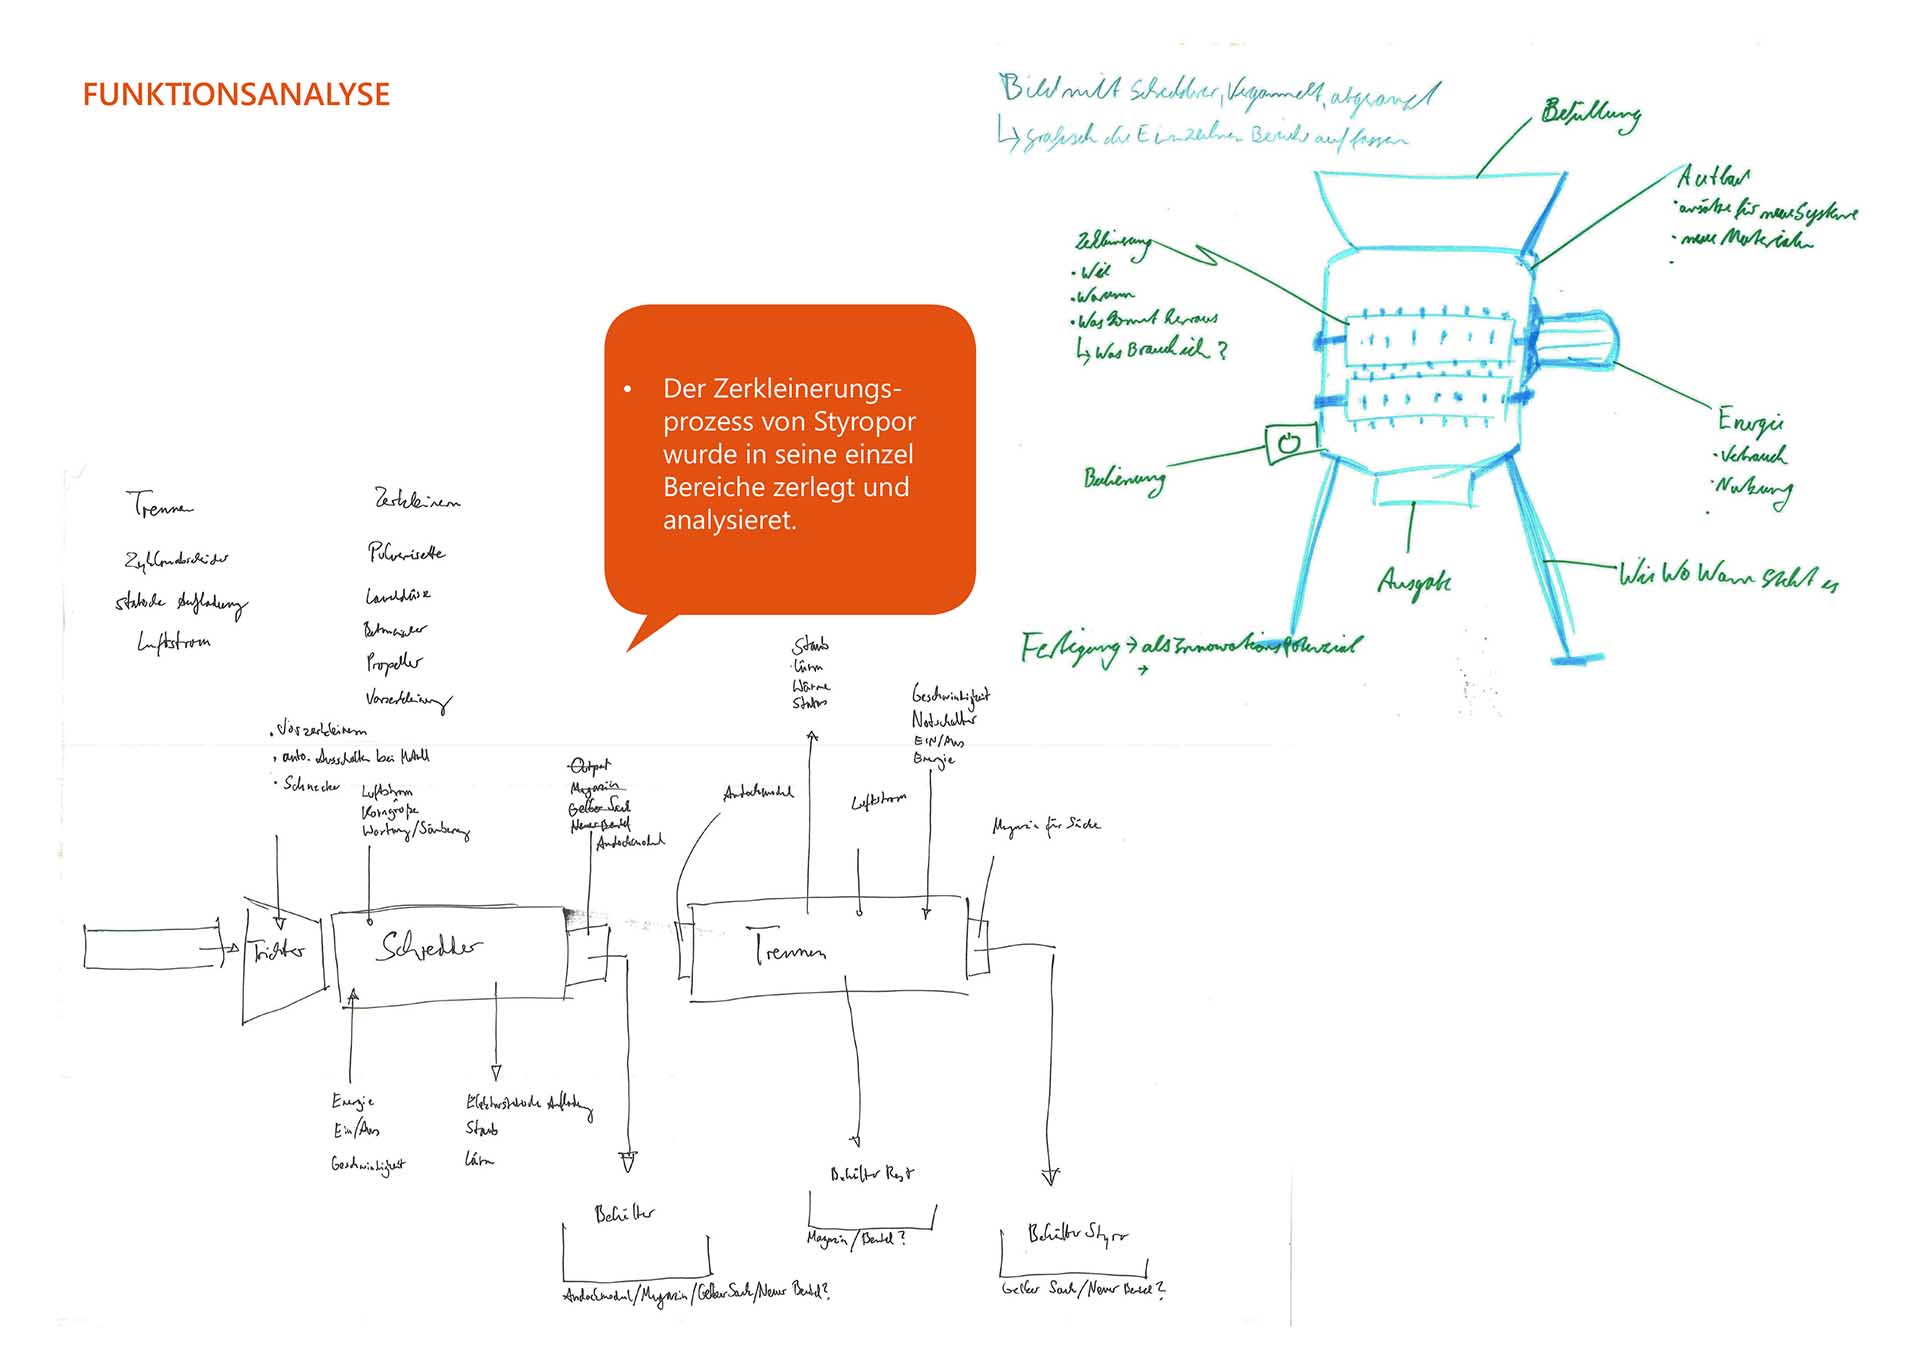 FUNKTIONSANALYSE
Bild mit Schedderer, Vergammelt, abgeranzt
↳ grafisch die Einzelnen Bereiche auffassen
Befüllung
Aufbau
· ansätze für neue Systeme
· neue Materialien
Zerkleinerung
· Wie
· Warum
· Was kommt herraus
↳ Was Brauch ich?
Energie
· Verbrauch
· Nutzung
Bedienung
Ausgabe
Wie Wo Wann steht es
Fertigung → als Innovations Potenzial
→
• Der Zerkleinerungs-
prozess von Styropor
wurde in seine einzel
Bereiche zerlegt und
analysieret.
Trennen
Zyklonabscheider
statische Aufladung
Luftstrom
Zerkleinern
Pulverisette
Propeller
Vorzerkleinerung
· Vorzerkleinern
· auto. Ausschalten bei Metall
· Schnecke
Luftstrom
Korngröße
Wartung/Säuberung
· Output
Magazin
Gelber Sack
Neuer Beutel
Andockmodul
Trichter
Schredder
Energie
Ein/Aus
Geschwindigkeit
Elektrostatische Aufladung
Staub
Lärm
Behälter
Andockmodul/Magazin/Gelber Sack/Neuer Beutel?
Andockmodul
Staub
Lärm
Wärme
Luftstrom
Geschwindigkeit
Notschalter
EIN/Aus
Energie
Magazin für Säcke
Trennen
Behälter Rest
Magazin/Beutel?
Behälter Styro
Gelber Sack/Neuer Beutel?